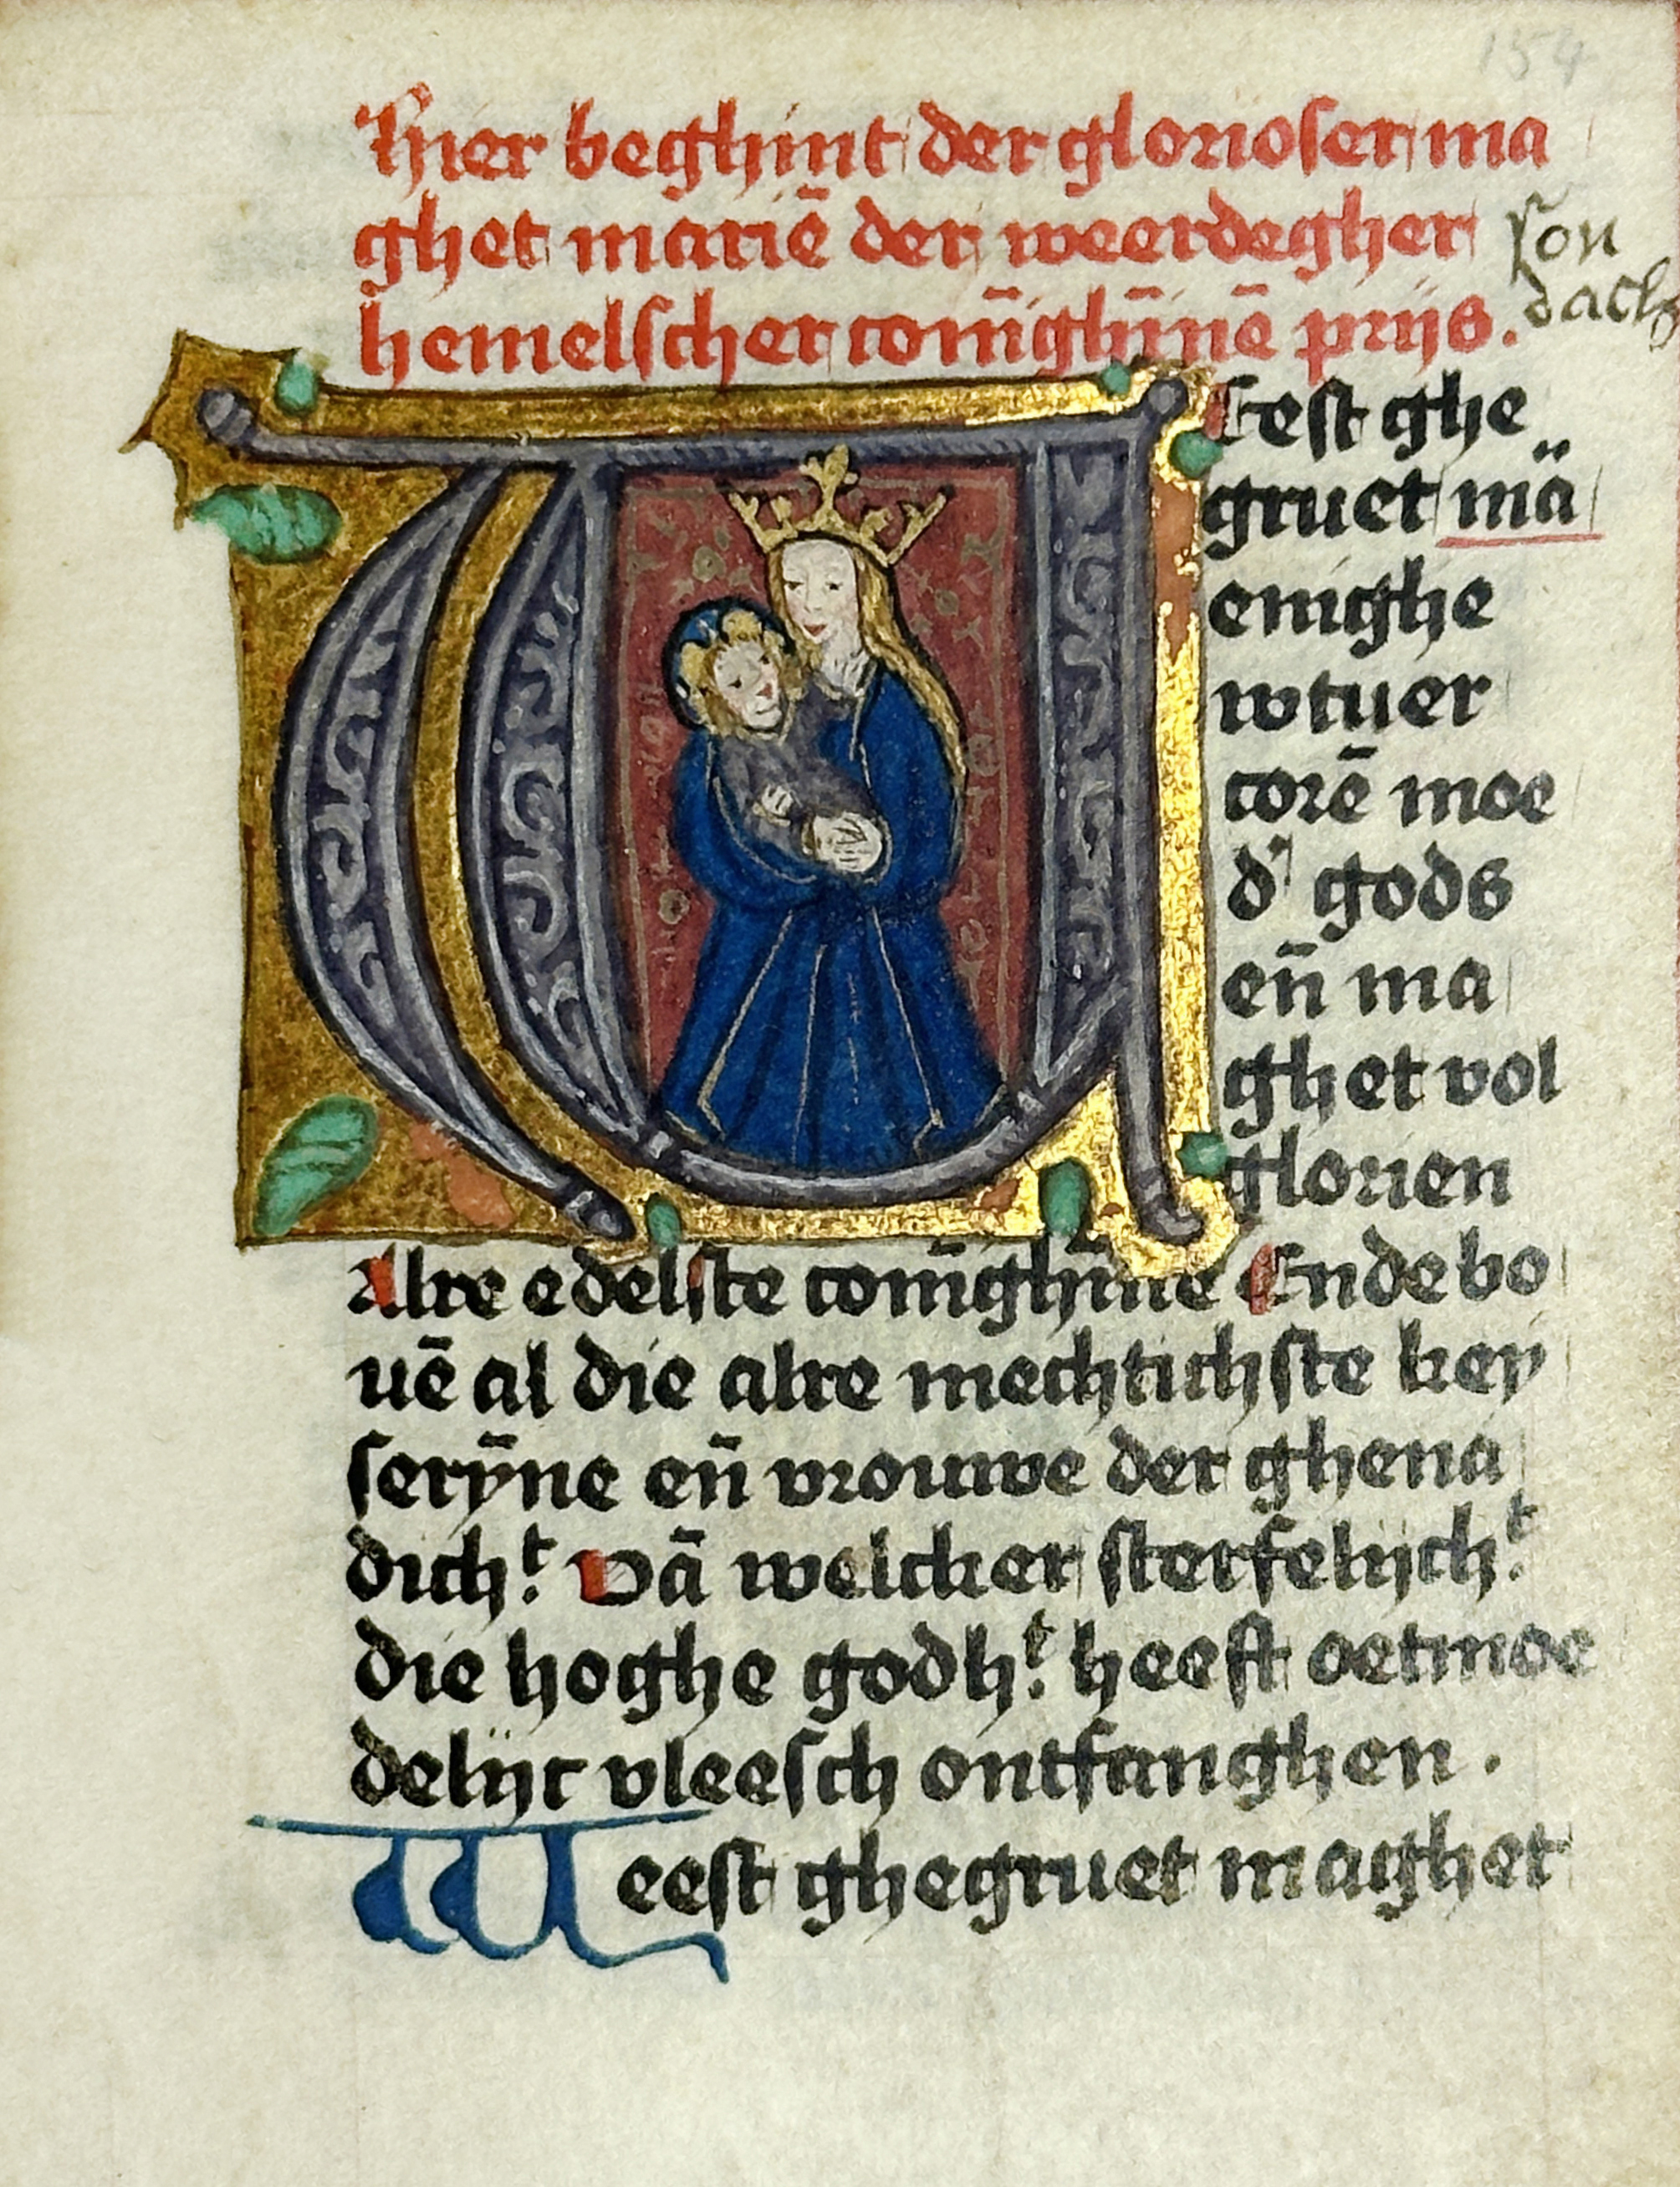 154
Hier beghint der glorioser ma
ghet mariē der weerdegher
hemelscher conīghīnē prijs.
son
dach
W Eest ghe
gruet mä
enighe
wtuer
corē moe
d' gods
en̄ ma
ghet vol
glorien
Alre edelste conīghīne Ende bo
uē al die alre mechtichste key
serȳne en̄ vrouwe der ghena
dichᵗ. Vā welcker sterfelijchᵗ.
die hoghe godhᵗ. heeft oetmoe
delijc vleesch ontfanghen .
Weest ghegruet maghet